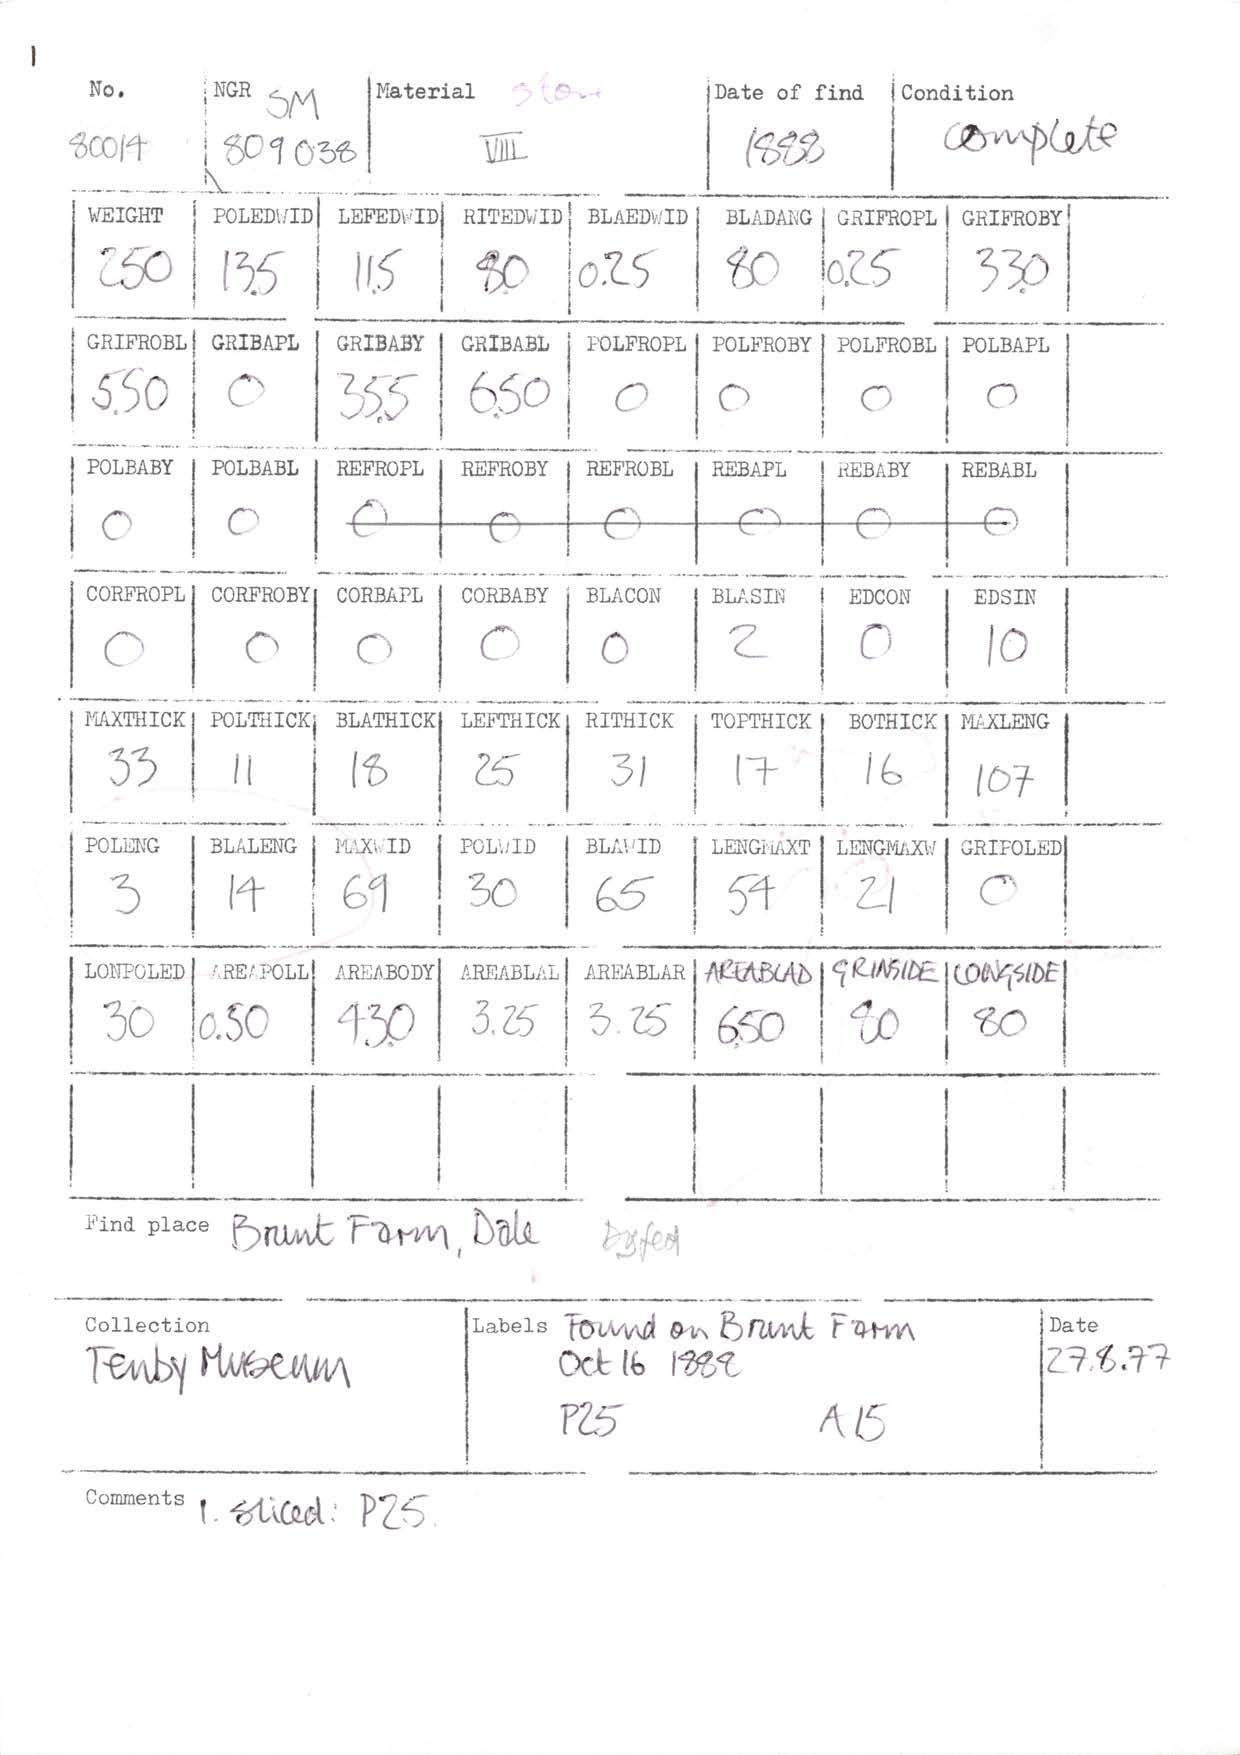 1
No. NGR SM Material Stone Date of find Condition
80014 809038 VIII 1888 complete
WEIGHT POLEDWID LEFEDWID RITEDWID BLAEDWID BLADANG GRIFROPL GRIFROBY
250 13.5 11.5 8.0 0.25 80 0.25 33.0
GRIFROBL GRIBAPL GRIBABY GRIBABL POLFROPL POLFROBY POLFROBL POLBAPL
5.50 0 35.5 6.50 0 0 0 0
POLBABY POLBABL REFROPL REFROBY REFROBL REBAPL REBABY REBABL
0 0 0 0 0 0 0 0
CORFROPL CORFROBY CORBAPL CORBABY BLACON BLASIN EDCON EDSIN
0 0 0 0 0 2 0 10
MAXTHICK POLTHICK BLATHICK LEFTHICK RITHICK TOPTHICK BOTHICK MAXLENG
33 11 18 25 31 17 16 107
POLENG BLALENG MAXWID POLWID BLAWID LENGMAXT LENGMAXW GRIPOLED
3 14 69 30 65 54 21 0
LONPOLED AREAPOLL AREABODY AREABLAL AREABLAR AREABLAD GRINSIDE LONGSIDE
30 0.50 43.0 3.25 3.25 6.50 80 80
Find place Brunt Farm, Dale Dyfed
Collection Labels Found on Brunt Farm Date
Tenby Museum Oct 16 1888 27.8.77
P25 A15
Comments 1. sliced: P25.